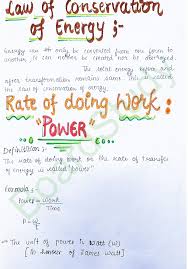 Law of Conservation
of Energy ;-
Energy can only be converted from one form to
another, it can neither be created nor be destroyed.
The total energy before and
after transformation remains same. this is called the
law of conservation of energy.
Rate of doing Work :
"POWER"
Definition :-
The rate of doing work or the rate of transfer
of energy is called "power"
Formula :
Power = Work
Time
P = W/t
→ The unit of power is Watt (W)
[in honour of James Watt]